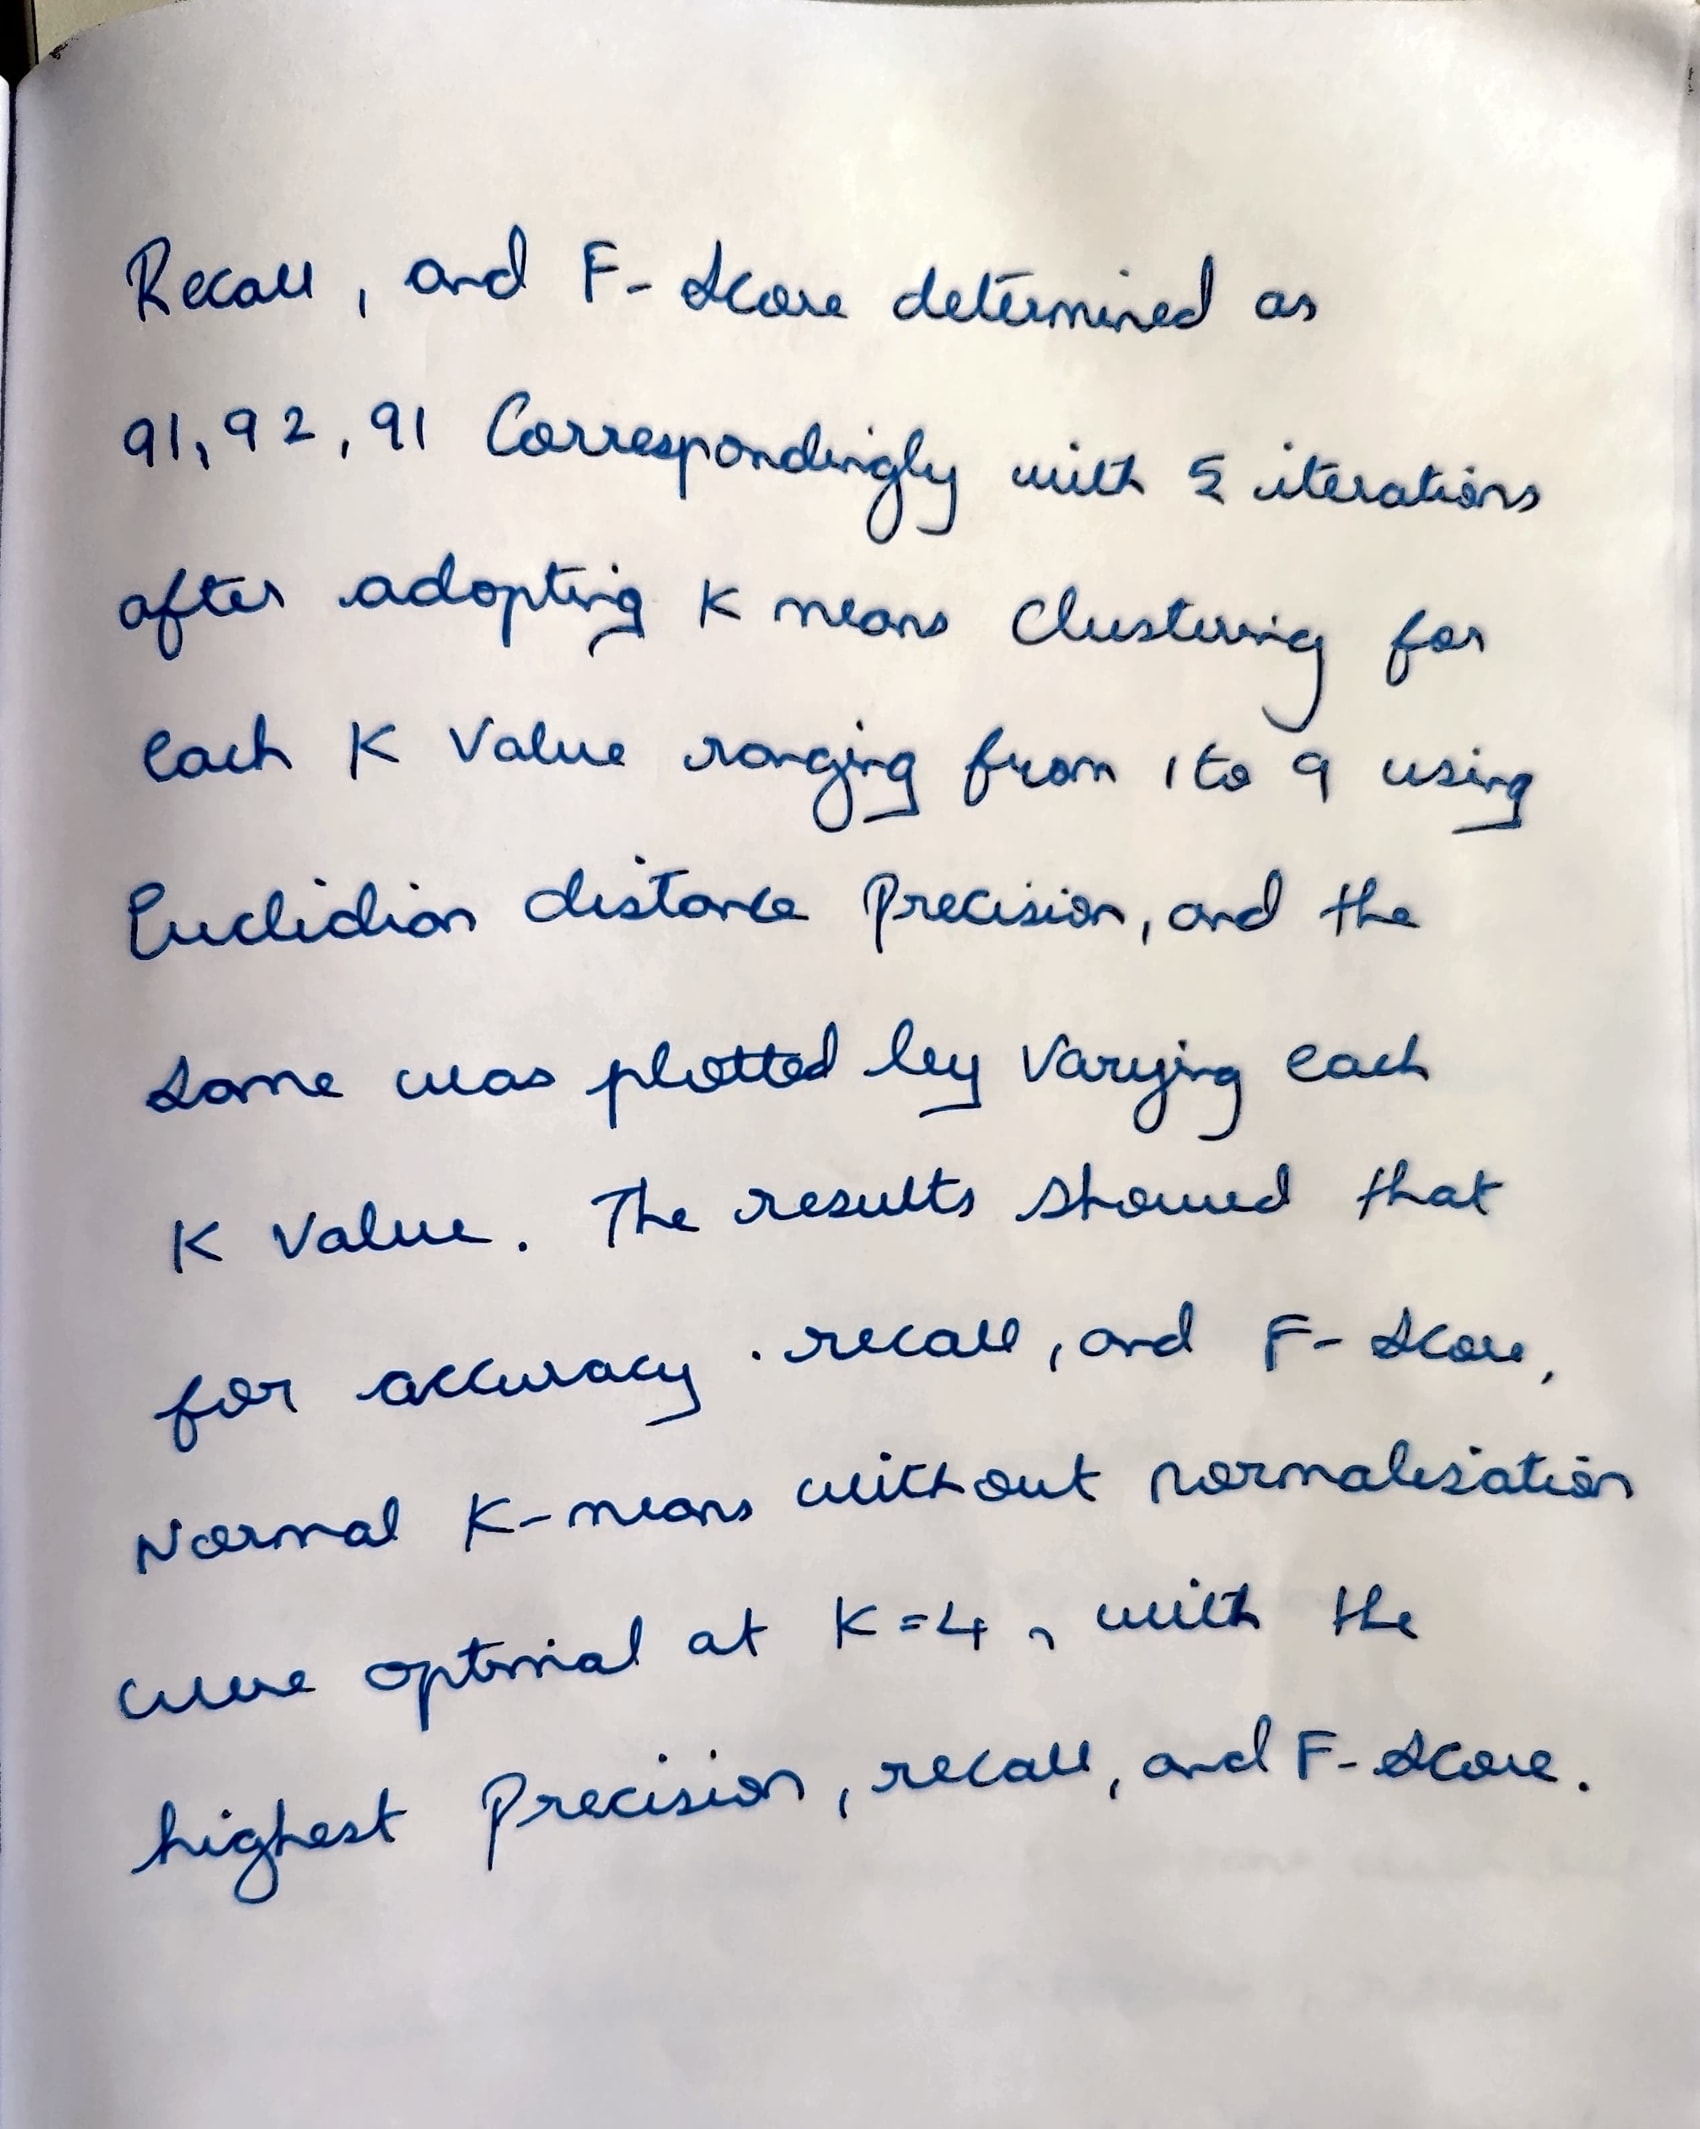 Recall, and F-Score determined as
91, 92, 91 Correspondingly with 5 iterations
after adopting K means Clustering for
each K Value ranging from 1 to 9 using
Euclidian distance Precision, and the
Same was plotted by Varying each
K Value. The results showed that
for accuracy. recall, and F-Score,
Normal K-means without normalization
were optimal at K=4, with the
highest Precision, recall, and F-Score.